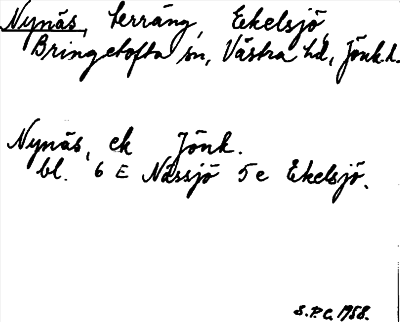 Nynäs, terräng, Ekelsjö,
Bringetofta sn, Västra hd, Jönk.l.
Nynäs, ek Jönk.
bl. 6 E Nässjö 5 e Ekelsjö.
S.P.C. 1958.